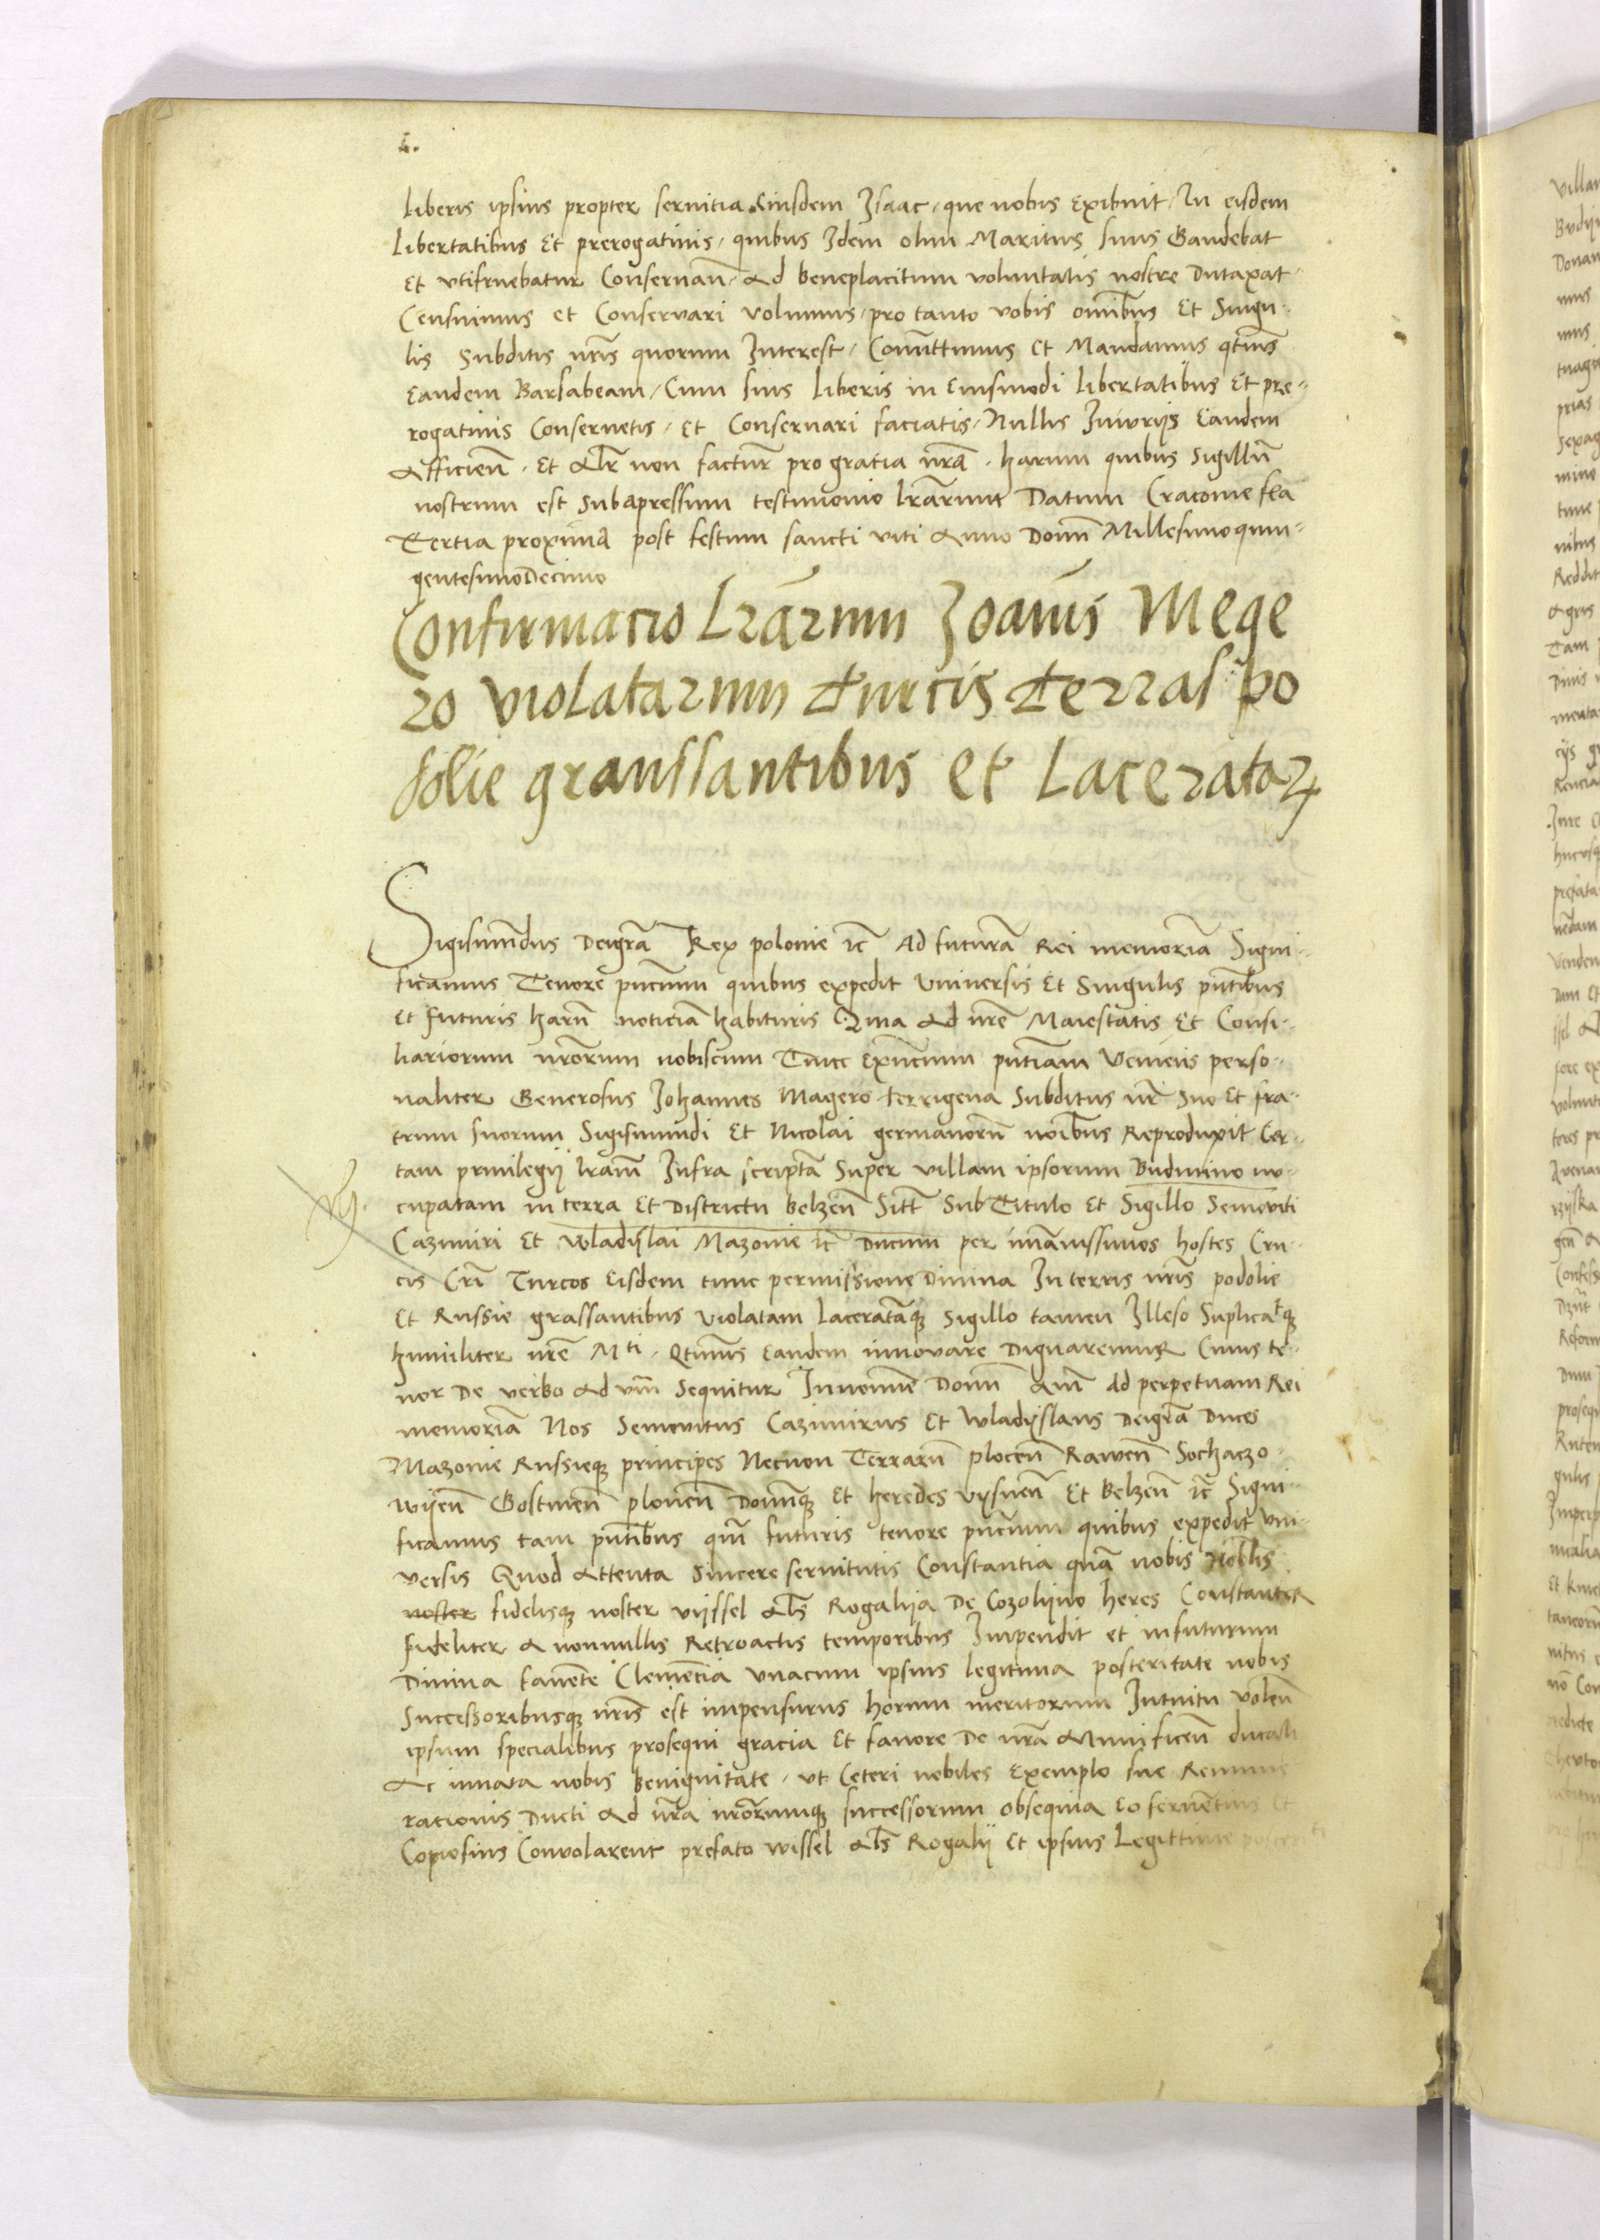 liberis ipsius propter servitia Eiusdem Isaac, que nobis exibuit, In eisdem
libertatibus Et prerogativis, quibus Idem olim Maritus suus Gaudebat
Et utifruebatur Conservan̄, Ad beneplacitum voluntatis nostre Dutaxat
Censuimus et Conservari volumus, pro tanto vobis om̄ibus Et Singu-
lis Subditis nr̄is quorum Interest, Comittimus Et Mandamus qt̄ins
Eandem Barsabeam, Cum suis liberis in Eiusmodi libertatibus Et pre-
rogativis Conservetis, et Conservari faciatis, Nullis Iniurijs Eandem
Afficien̄. Et Alr̄ non factur̄ pro gratia nr̄a. harum quibus Sigillū
nostrum est Subapressum testimonio lrārum Datum Cracovie fe̅a
Tertia proxima post festum sancti viti Anno Domī Millesimo quin-
gentesimo Decimo
Confirmacio Lrārum Joānis Mege
ro violatarum Turcis Terras po
dolie graussantibus et Laceratarꝝ
Sigismūdus Deigrā Rex polonie ꝛc̄ Ad futurā Rei memoriā Signi-
ficamus Tenore pn̄cium quibus expedit Universis Et Singulis pn̄tibus
Et futuris harū noticiā habituris Quia Ad nr̄e Maiestatis Et Consi-
liariorum nr̄orum nobiscum Tunc exn̄cium pn̄tiam veniēs perso-
naliter Generosus Johannes Magero terrigena Subditus nr̄ Suo Et fra-
trum suorum Sigismundi Et Nicolai germanorū nōibus Reproduxit Cer-
tam privilegij lrām Infra scriptā Super villam ipsorum Budinino nu-
cupatam in terra Et Districtu belzen̄ Sitā Sub Titulo Et Sigillo Semoviti
Cazimiri Et Wladijslai Mazovie ꝛc̄ Ducum per imānissimos hostes Cru-
cis Cri̅ Turcos Eisdem tunc permissione Divina In terris nr̄is podolie
Et Russie grassantibus violatam laceratāqꝫ Sigillo tamen Illeso Suplicatqꝫ
humiliter nr̄e Mti. Qt̄inus Eandem innovare Dignaremur Cuius te-
nor De verbo Ad vm̄ Sequitur In nomine Domī Am̄ Ad perpetuam Rei
memoriā Nos Semovitus Cazimirus Et Wladijslaus Deigrā Duces
Mazovie Russieqꝫ principes Necnon Terrarū plocen̄ Rawen̄ Sochaczo-
wijen̄ Gostinen̄ plonen̄ Dominiqꝫ Et heredes vijsnen̄ Et Belzen̄ ꝛc̄ Signi-
ficamus tam pn̄tibus quā futuris tenore pn̄cium quibus expedit Uni-
versis Quod Attenta Sincere servitutis Constantia quā nobis Nobilis
noster fidelisqꝫ noster vijssel Al̄s Rogalija De Cozolijno heres Constanter
fideliter A nonnullis Retroactis temporibus Inpendit et in futurum
Divina favēte Clemētia unacum ipsius legitima posteritate nobis
Successoribusqꝫ nr̄is est impensurus horum meritorum Intuitu volen̄
ipsum specialibus prosequi gracia Et favore De nrā Munificen̄ ducali
Ac innata nobis benignitate, ut Ceteri nobiles Exemplo sue Remune
rationis Ducti Ad nrā nrōrumqꝫ successorum obsequia Eo ferventius Et
Copiosius Convolarent prefato wissel Al̄s Rogalij Et ipsius Legittime